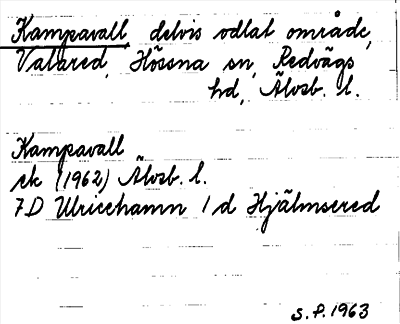 Kampavall, delvis odlat område,
Valared, Hössna sn, Redvägs
hd, Älvsb. l.
Kampavall
ek (1962) Älvsb. l.
7D Ulricehamn 1 d Hjälmsered
S.F. 1963